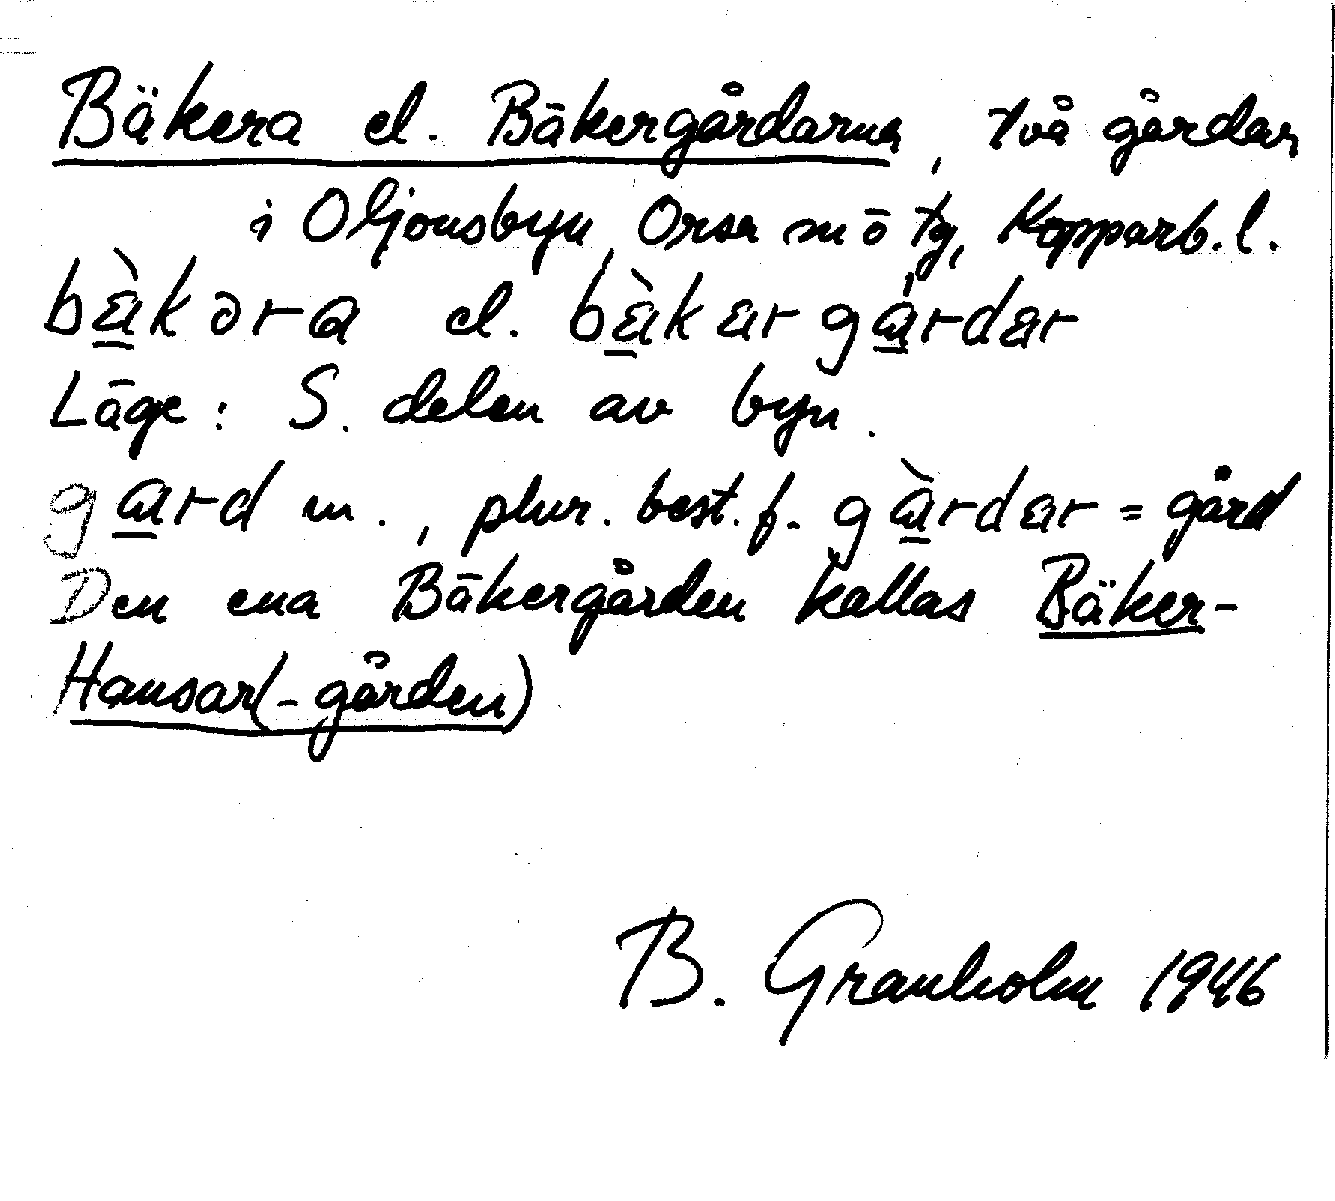 Bäkera el. Bäkergårdarna, två gårdar
i Oljonsbyn, Orsa sn ö tg, Kopparb. l.
bä̀kəra el. bä̀kärgá̱rdär
Läge: S. delen av byn.
ga̱rd m., plur. best. f. gà̱rdär = gård
Den ena Bäkergården kallas Bäker-
Hansar(-gården)
B. Granholm 1946